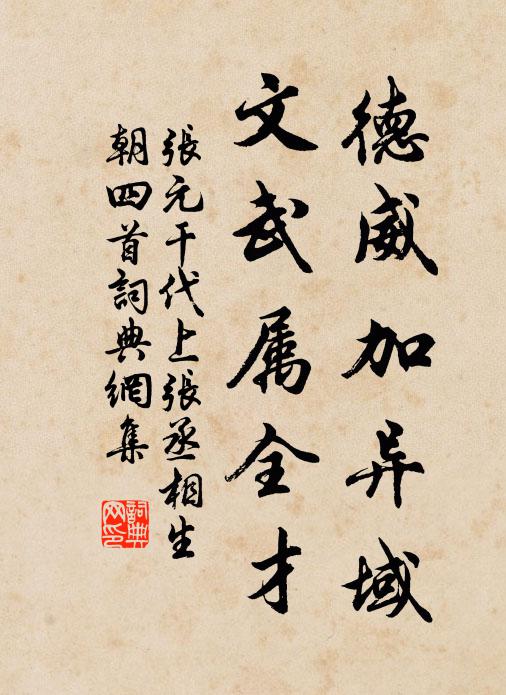 德威加异域
文武属全才
張元干代上張丞相生
朝四首詞典網集
詞典网印